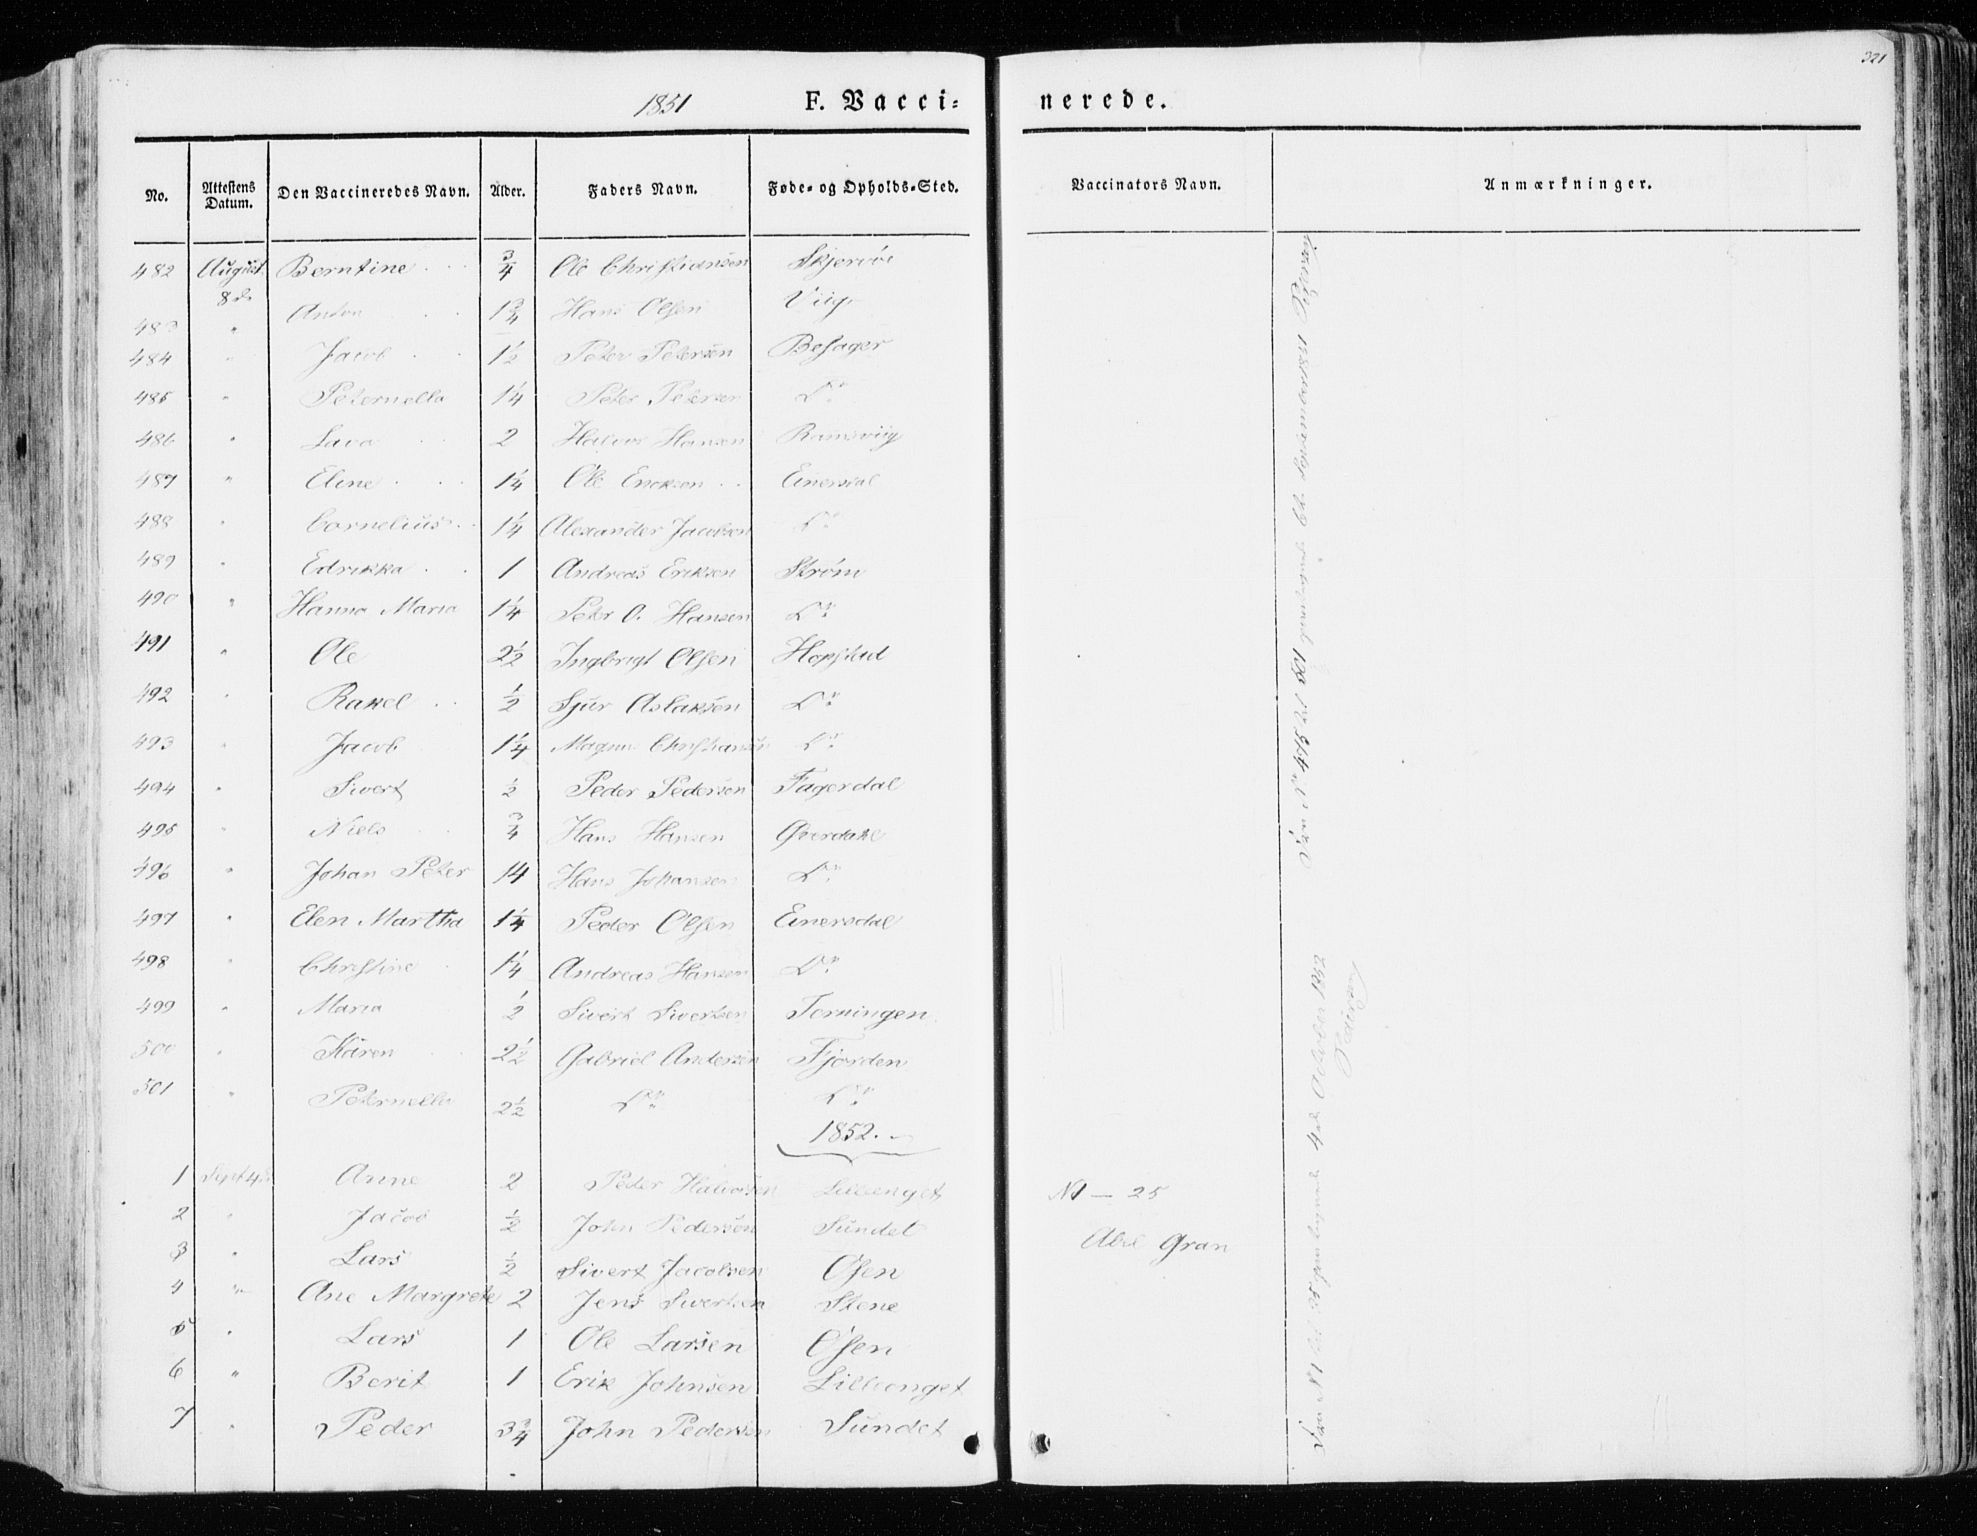 321
1851 F. Vacci= nerede.
No. Attestens Datum. Den Vaccineredes Navn. Alder. Faders Navn. Føde- og Opholds-Sted. Vaccinators Navn. Anmærkninger.
482 August 8de Berntine 3/4 Ole Christiansen Skjervöe
483 " Anton 1 3/4 Hans Olsen Viig
484 " Jacob 1 1/2 Peter Petersen Besager
485 " Peternella 1 1/4 Peter Petersen Do
486 " 2 Halvor Hansen Ramsviig
487 " Eline 1 1/4 Ole Ericksen Einersdal
488 " Cornelius 1 1/4 Alexander Jacobsen Do
489 " Edrikka 1 Andreas Eriksen Strøm
490 " Hanna Maria 1 1/4 Peter O. Hansen Do
491 " Ole 2 1/2 Ingbrigt Olsen Hopstad
492 " Rakel 1/2 Sjur Aslaksen Do
493 " Jacob 1 1/4 Magnus Christiansen Do
494 " Sivert 1/2 Peder Pedersen Fagerdal
495 " Niels 3/4 Hans Hansen
496 " Johan Peter 14 Hans Johansen Do
497 " Elen Martha 1 1/4 Peder Olsen Einersdal
498 " Christine 1 1/4 Andreas Hansen Do
499 " Maria 1/2 Sivert Sivertsen Terningen
500 " Karen 2 1/2 Gabriel Andersen Fjorden
501 " Peternella 2 1/2 Do Do
1852.
1 Sept 4de Anne 2 Peder Halvorsen Lilleenget N 1 — 25
2 " Jacob 1/2 John Pedersen Sundet
3 " Lars 1/2 Sivert Jacobsen Osen Abel Gran
4 " Ane Margrete 2 Jens Sivertsen Stene
5 " Lars 1 Ole Larsen Osen
6 " Berit 1 Erik Johnsen Lilleenget
7 " Peder 3 3/4 John Pedersen Sundet
501 September 1851
Fra N 1 til 25 4de October 1852